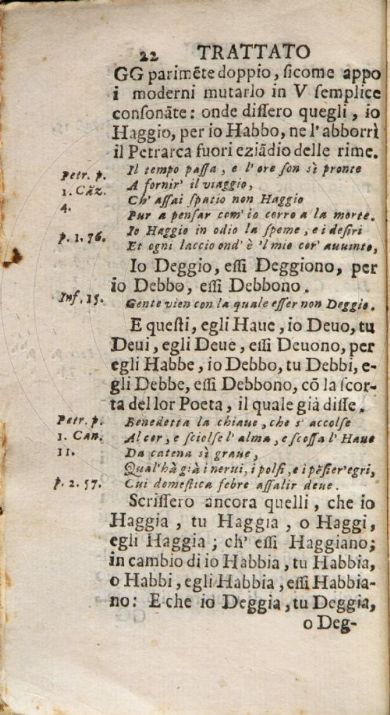 22 TRATTATO
GG parimēte doppio, ſicome appo
i moderni mutarlo in V ſemplice
conſonāte: onde diſſero quegli, io
Haggio, per io Habbo, ne l'abborrì
il Petrarca fuori eziādio delle rime.
Petr. p. Il tempo paſſa, e l'ore ſon sì pronte
1. Cāz. A fornir' il viaggio,
4. Ch'aſſai ſpatio non Haggio
Pur a penſar com'io corro a la morte.
p. 1. 76. Io Haggio in odio la ſpeme, e i deſiri
Et ogni laccio ond'è 'l mio cor' auuinto,
Io Deggio, eſſi Deggiono, per
io Debbo, eſſi Debbono.
Inf. 15. Gente vien con la quale eſſer non Deggio.
E queſti, egli Haue, io Deuo, tu
Deui, egli Deue, eſſi Deuono, per
egli Habbe, io Debbo, tu Debbi, e-
gli Debbe, eſſi Debbono, cō la ſcor-
ta del lor Poeta, il quale già diſſe.
Petr. p. Benedetta la chiaue, che s'accolſe
1. Can. Al cor, e ſciolſe l'alma, e ſcoſſa l'Haue
11. Da catena sì graue,
Qual'hà già i nerui, i polſi, e i pēſier'egri,
p. 2. 57. Cui domeſtica febre aſſalir deue.
Scriſſero ancora quelli, che io
Haggia, tu Haggia, o Haggi,
egli Haggia; ch'eſſi Haggiano;
in cambio di io Habbia, tu Habbia,
o Habbi, egli Habbia, eſſi Habbia-
no: E che io Deggia, tu Deggia,
o Deg-